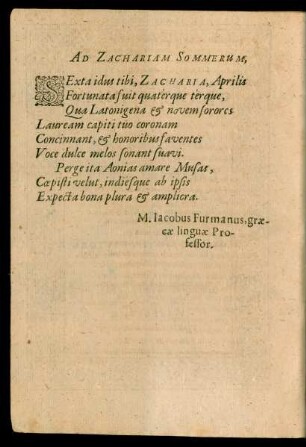 AD ZACHARIAM SOMMERUM,
SExta idus tibi, ZACHARIA, Aprilis
Fortunata fuit quatèrque tèrque,
Qua Latonigena & novem sorores
Lauream capiti tuo coronam
Concinnant, & honoribus faventes
Voce dulce melos sonant suavi.
Perge ita Aonias amare Musas,
Cœpisti velut, indiesque ab ipsis
Expecta bona plura & ampliora.
M. Iacobus Furmanus, græ-
cæ linguæ Pro-
fessor.